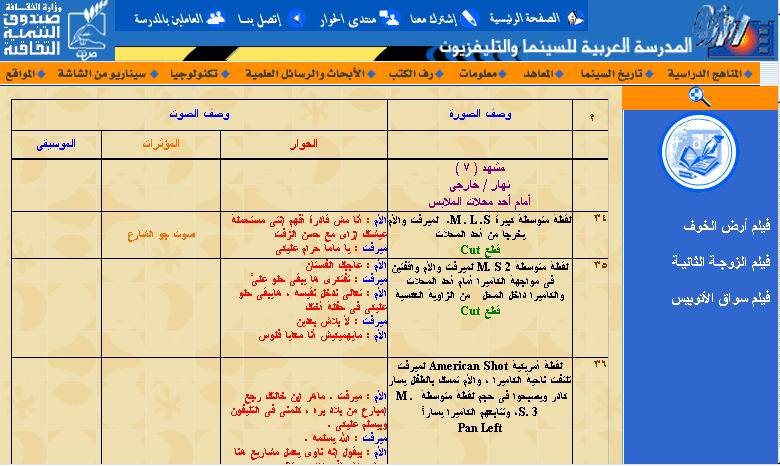 وزارة الثقافة
صندوق
التنمية
الثقافية
الصفحة الرئيسية
إشترك معنا
منتدى الحوار
إتصل بنا
العاملين بالمدرسة
المدرسة العربية للسينما والتليفزيون
المناهج الدراسية
تاريخ السينما
المعاهد
معلومات
رف الكتب
الأبحاث والرسائل العلمية
تكنولوجيا
سيناريو من الشاشة
المواقع
فيلم أرض الخوف
فيلم الزوجة الثانية
فيلم سواق الأتوبيس
م
وصف الصورة
وصف الصوت
الحوار
المؤثرات
الموسيقى
مشهد ( ٧ )
نهار / خارجى
أمام أحد محلات الملابس
٣٤
لقطة متوسطة كبيرة M.L.S، لميرفت والأم
يخرجا من أحد المحلات
قطع Cut
الأم : أنا مش قادرة أفهم إنتى مستحملة
عيشتك إزاى مع حسن الزفت
ميرفت : يا ماما حرام عليكى
صوت جو الشارع
٣٥
لقطة متوسطة M. S 2 لميرفت والأم واقفتين
فى مواجهة الكاميرا أمام أحد المحلات
والكاميرا داخل المحل من الزاوية العكسية
قطع Cut
الأم : عاجبك الفستان
ميرفت : تفتكرى ها يبقى حلو علىّ
الأم : تعالى ندخل نقيسه ، هايبقى حلو
عليكى فى حفلة أختك
ميرفت : لأ بلاش بعدين
الأم : مايهميكيش أنا معايا فلوس
٣٦
لقطة أمريكية American Shot لميرفت
تلتفت ناحية الكاميرا ، والأم تمسك بالطفل يسار
كادر ويصبحوا فى حجم لقطة متوسطة M.
S. 3، وتتابعهم الكاميرا يساراً
Pan Left
الأم : ميرفت ، ماهر إبن خالتك رجع
إمبارح من بلاد بره ، كلمنى فى التليفون
وبيسلم عليكى .
ميرفت : الله يسلمه .
الأم : بيقول إنه ناوى يعمل مشاريع هنا